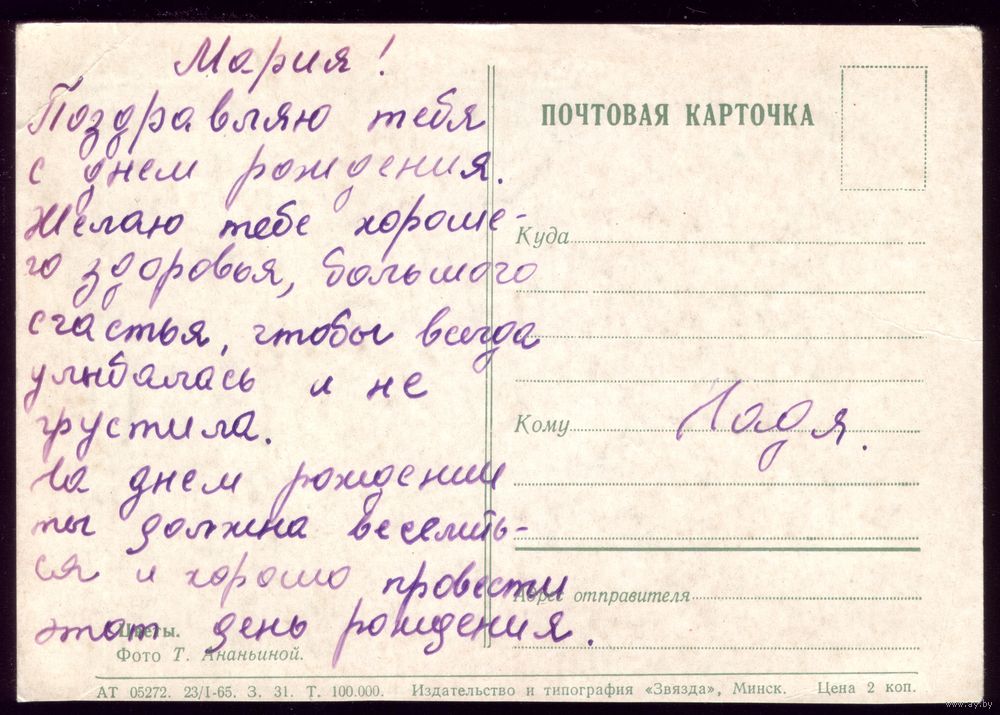 Мария!
Поздравляю тебя
с днем рождения.
Желаю тебе хороше-
го здоровья, большого
счастья, чтобы всегда
улыбалась и не
грустила.
На днем рождении
ты должна веселить-
ся и хорошо провести
этот день рождения.
Цветы.
Фото Т. Ананьиной.
ПОЧТОВАЯ КАРТОЧКА
Куда
Кому Надя.
Адрес отправителя
АТ 05272. 23/I-65. З. 31. Т. 100.000. Издательство и типография «Звязда», Минск. Цена 2 коп.
www.ay.by